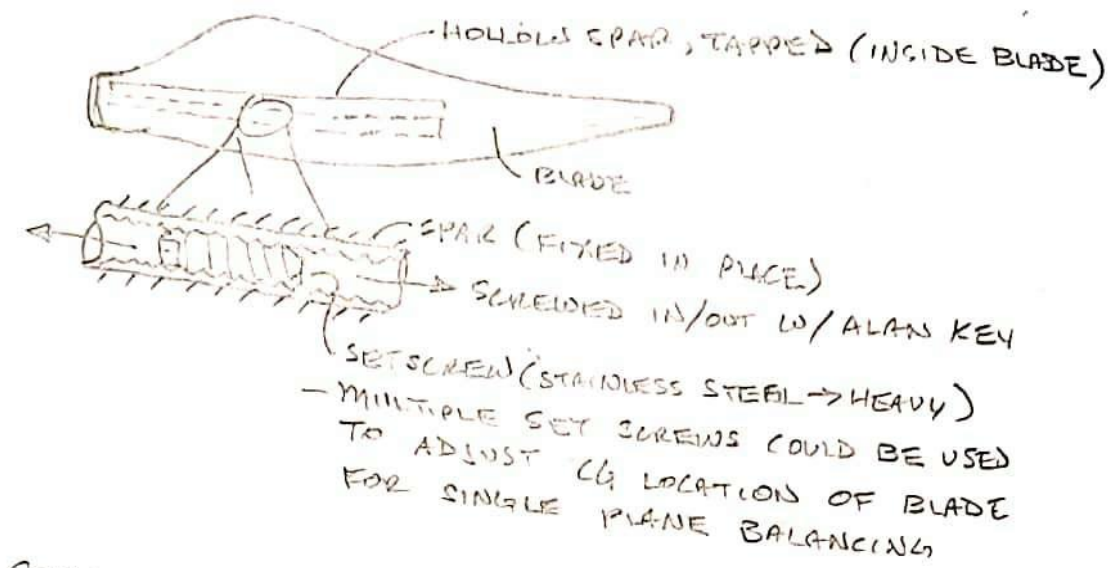 HOLLOW SPAR, TAPPED (INSIDE BLADE)
BLADE
SPAR (FIXED IN PLACE)
SCREWED IN/OUT W/ ALAN KEY
SETSCREW (STAINLESS STEEL → HEAVY)
- MULTIPLE SET SCREWS COULD BE USED
TO ADJUST CG LOCATION OF BLADE
FOR SINGLE PLANE BALANCING